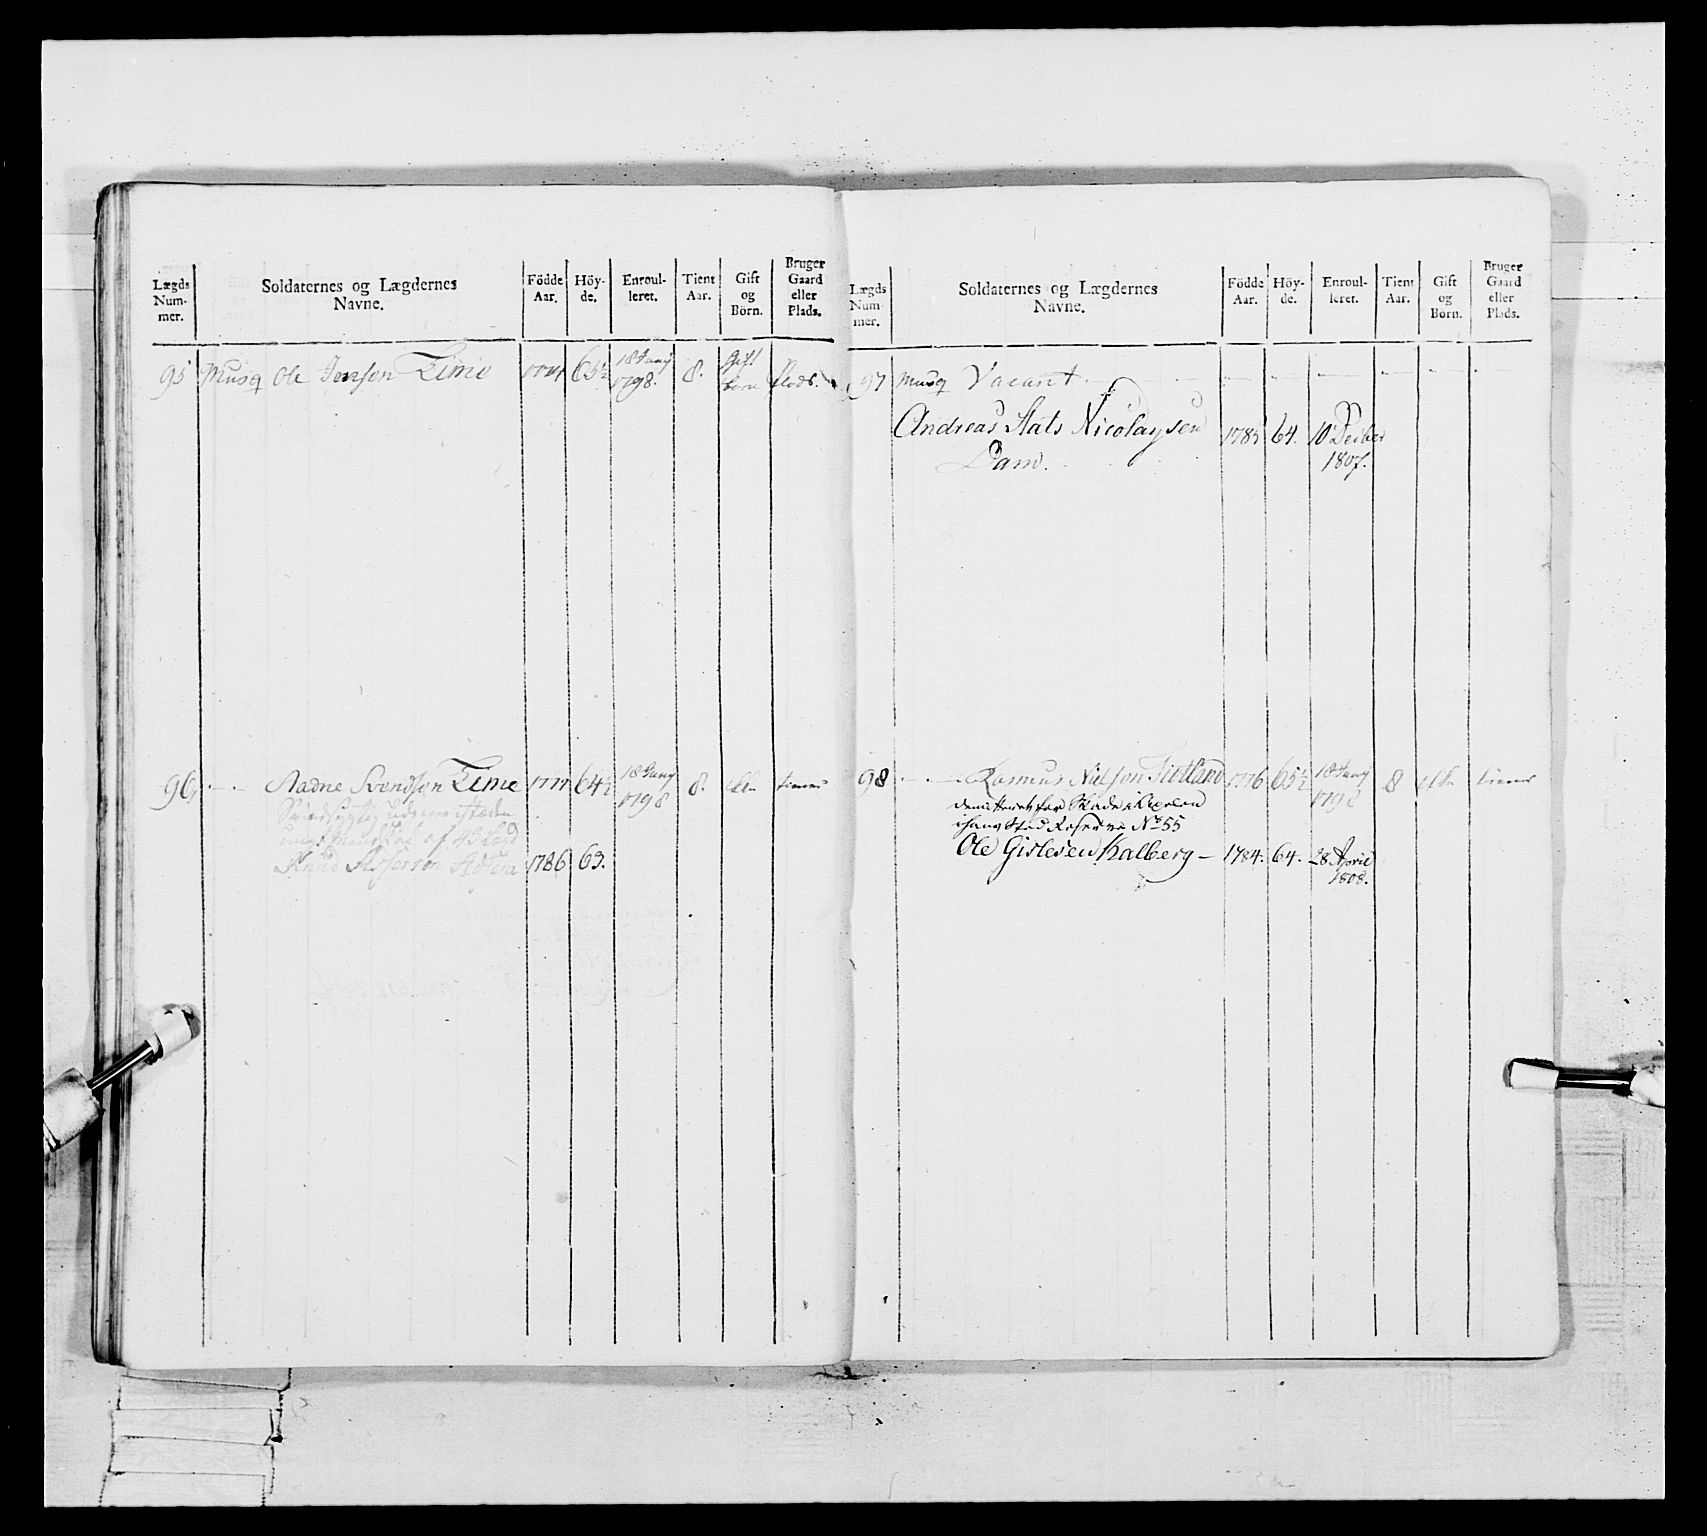 Lægds Num- mer.
Soldaternes og Lægdernes Navne.
Födde Aar.
Höy- de.
Enroul- leret.
Tient Aar.
Gift og Børn.
Bruger Gaard eller Plads.
95 Musq Ole Jensen Time 1774 65½ 18 Janv 1798. 8. Gift Plads.
96 Aadne Svendsen Time 1777 64½ 18 Janv 1798 8. tiener
af 43 Lægd
Knud 1786 63.
Lægds Num- mer.
Soldaternes og Lægdernes Navne.
Födde Aar.
Höy- de.
Enroul- leret.
Tient Aar.
Gift og Børn.
Bruger Gaard eller Plads.
97 Musq Vacant
Andreas Stats Nicolaysen 1785 64. 10 Decber
Dam. 1807.
98 Rasmus Nielson 1776 65½ 18 Janv 1798 8 tiener
ihans Sted Reserve No 55
Ole Gislesen Kalberg — 1784. 64. 28 April
1808.